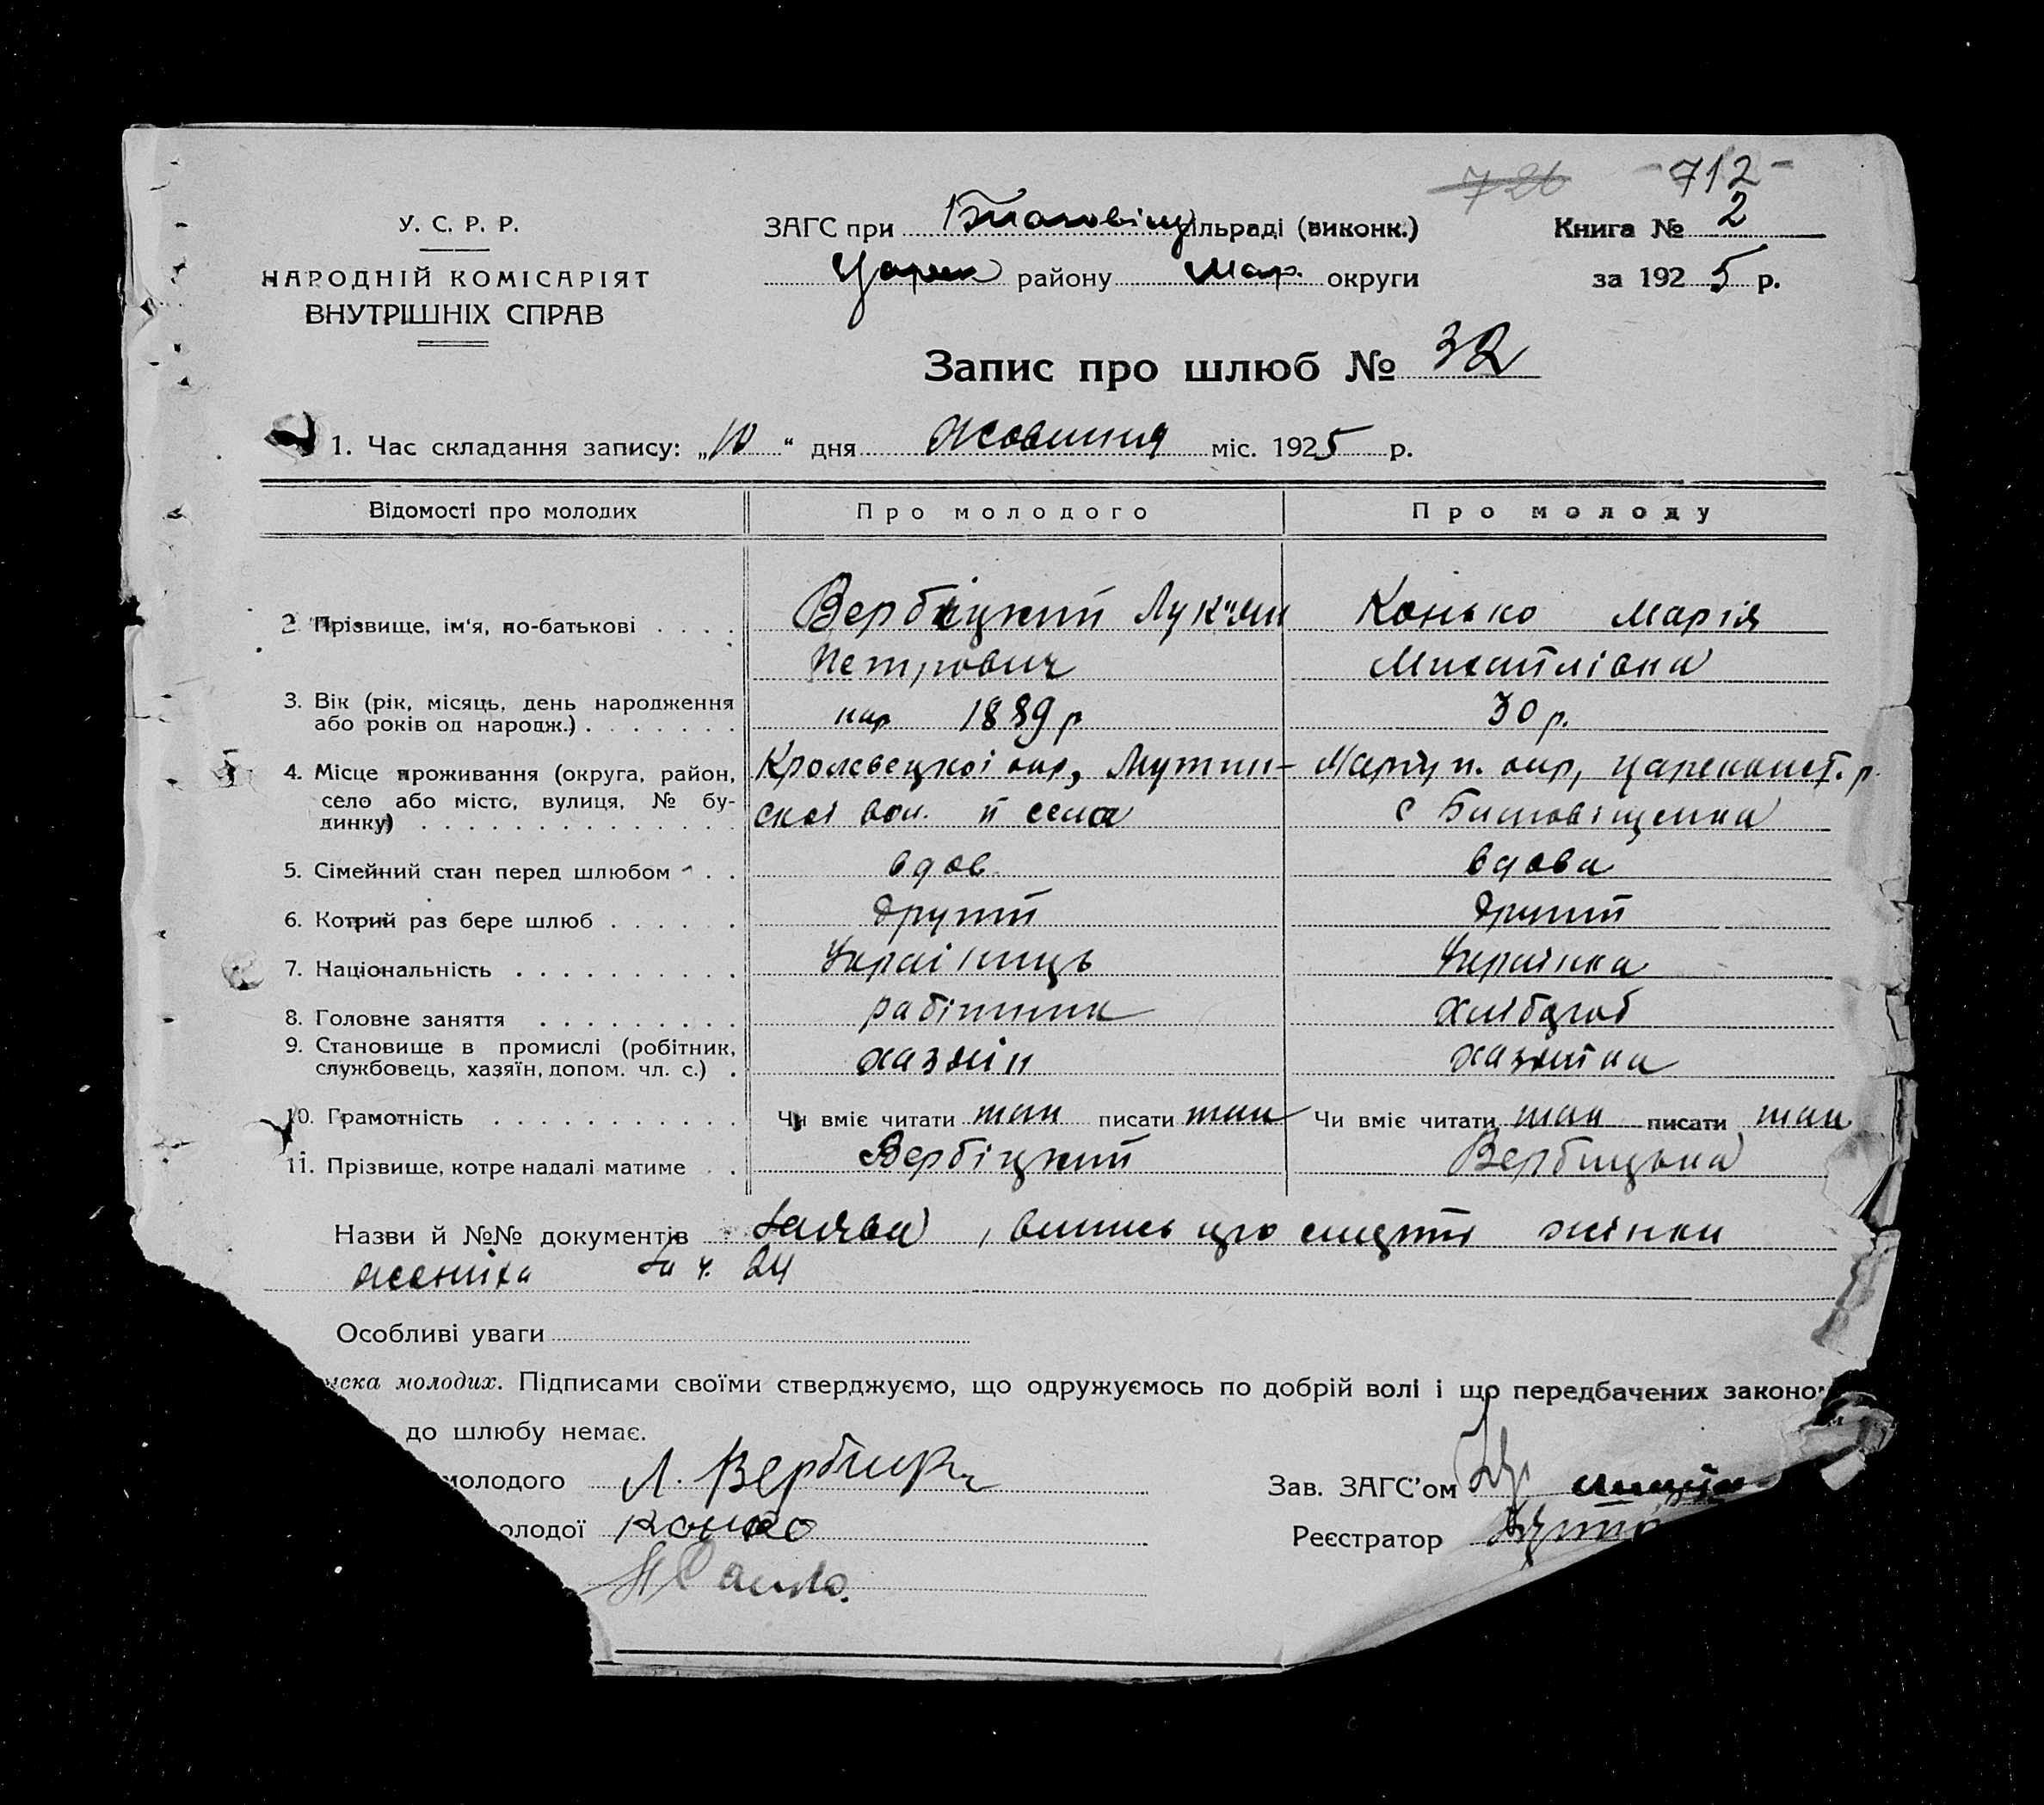 726 -712-
У. С. Р. Р.
НАРОДНІЙ КОМІСАРІЯТ
ВНУТРІШНІХ СПРАВ
ЗАГС при сільраді (виконк.)
Царек району Мар. округи
Книга № 2
за 1925 р.
Запис про шлюб № 32
1. Час складання запису: „10“ дня Жовтня міс. 1925 р.
Відомості про молодих Про молодого Про молоду
2 Прізвище, ім'я, по-батькові . . . . Вербіцкий Лук'ян Конько Марія
Петрович Михайлівна
3. Вік (рік, місяць, день народження
або років од народж.) . . . . . . . нар 1889 р 30 р.
4. Місце проживання (округа, район,
село або місто, вулиця, № бу-
динку) . . . . . . . . . . . . . .
Кролевецкої окр, Мутин-
скої вол. й села
Маріуп. окр, Цареконст. р.
с
5. Сімейний стан перед шлюбом . . вдов. вдова
6. Котрий раз бере шлюб . . . . . . другий другий
7. Національність . . . . . . . . . . Українець Українка
8. Головне заняття . . . . . . . . . робітник хлібороб
9. Становище в промислі (робітник,
службовець, хазяїн, допом. чл. с.) . хазяїн хазяйка
10. Грамотність . . . . . . . . . . . Чи вміє читати так писати так Чи вміє читати так писати так
11. Прізвище, котре надалі матиме . . Вербіцкий Вербицька
Назви й №№ документів Заява, випись про смерть жінки
жениха за ч. 24
Особливі уваги
молодих. Підписами своїми стверджуємо, що одружуємось по добрій волі і що передбачених законо
до шлюбу немає.
молодого Л. Вербицки
олодої Конко
Зав. ЗАГС'ом
Реєстратор